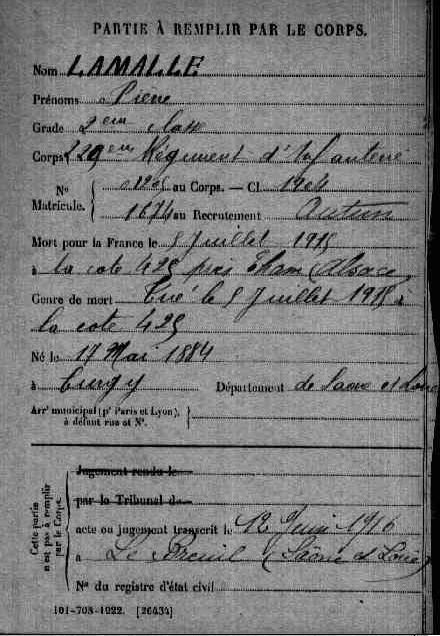 PARTIE À REMPLIR PAR LE CORPS.
Nom LAMALLE
Prénoms Pierre
Grade 2eme classe
Corps 229eme Régiment d'Infanterie
No Matricule. { au Corps. — Cl. 1904
1874 au Recrutement Autun
Mort pour la France le Juillet 1915
à la cote 425 près Tham (Alsace)
Genre de mort Tué le Juillet 1915 à
la cote 425
Né le 17 Mai 1884
à Curgy Département de Saone et Loire
Arrt municipal (pr Paris et Lyon), à défaut rue et No.
Jugement rendu le
par le Tribunal de
acte ou jugement transcrit le 12 Juin 1916
à Le Breuil (Saône et Loire)
No du registre d'état civil
Cette partie n'est pas à remplir par le Corps.
101-708-1922. [26434]